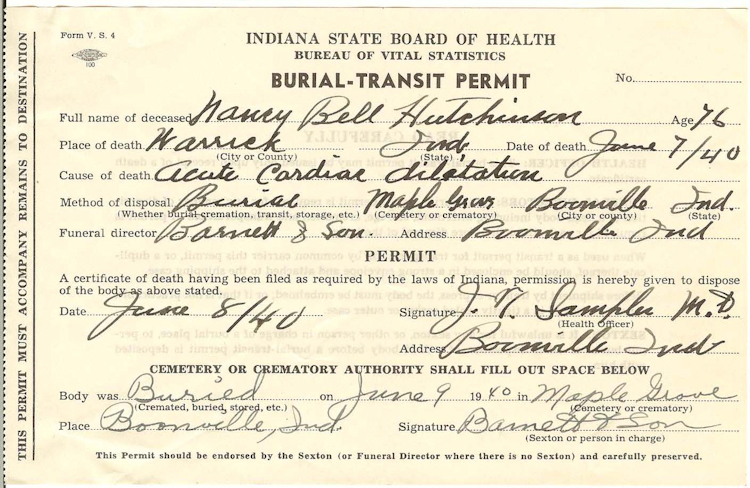 Form V. S. 4
100
INDIANA STATE BOARD OF HEALTH
BUREAU OF VITAL STATISTICS
BURIAL-TRANSIT PERMIT
No.
Full name of deceased Nancy Bell Hutchinson Age 76
Place of death Warrick Ind. Date of death June 7/40
(City or County) (State)
Cause of death Acute Cardiac dilatation
Method of disposal Burial Maple Grove Boonville Ind.
(Whether burial cremation, transit, storage, etc.) (Cemetery or crematory) (City or county) (State)
Funeral director Barnett & Son. Address Boonville Ind
PERMIT
A certificate of death having been filed as required by the laws of Indiana, permission is hereby given to dispose
of the body as above stated.
Date June 8/40 Signature Sampler M.D.
(Health Officer)
Address Boonville Ind
CEMETERY OR CREMATORY AUTHORITY SHALL FILL OUT SPACE BELOW
Body was Buried on June 9 1940 in Maple Grove
(Cremated, buried, stored, etc.) (Cemetery or crematory)
Place Boonville, Ind. Signature Barnett & Son
(Sexton or person in charge)
This Permit should be endorsed by the Sexton (or Funeral Director where there is no Sexton) and carefully preserved.
THIS PERMIT MUST ACCOMPANY REMAINS TO DESTINATION